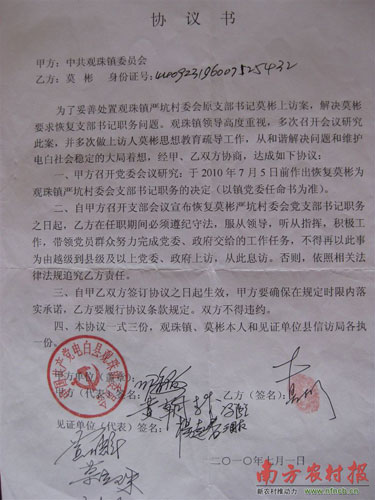 协议书
甲方：中共观珠镇委员会
乙方：莫彬 身份证号：
为了妥善处置观珠镇严坑村委会原支部书记莫彬上访案，解决莫彬
要求恢复支部书记职务问题。观珠镇领导高度重视，多次召开会议研究
此案，并多次做上访人莫彬思想教育疏导工作，从和谐解决问题和维护
电白社会稳定的大局着想，经甲、乙双方协商，达成如下协议：
一、甲方召开党委会议研究：于2010年7月5日前作出恢复莫彬为
观珠镇严坑村委会支部书记职务的决定（以镇党委任命书为准）。
二、自甲方召开支部会议宣布恢复莫彬严坑村委会党支部书记职务
之日起，乙方在任职期间必须遵纪守法，服从领导，听从指挥，积极工
作，带领党员群众努力完成党委、政府交给的工作任务，不得再以此事
为由越级到县级及以上党委、政府上访，从此息访。否则，依照相关法
律法规追究乙方责任。
三、自甲乙双方签订协议之日起生效，甲方要确保在规定时限内落
实承诺，乙方要履行协议条款规定。双方不得违约。
四、本协议一式三份，观珠镇、莫彬本人和见证单位县信访局各执
一份。
甲方单位（盖章）：
甲方（代表）签名： 乙方（签名）：
见证单位（代表）签名：
二〇一〇年七月一日
南方农村报
新农村推动力 www.nfncb.cn